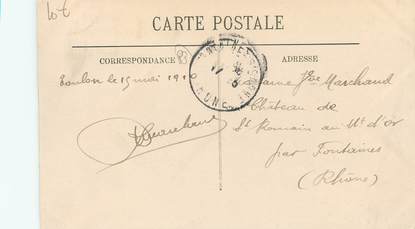 lot
CARTE POSTALE
CORRESPONDANCE
ADRESSE
Toulon le 15 mai 1910
Madame Jve Marchand
Château de
St Romain au Mt d'or
par Fontaines
(Rhône)
Marchand